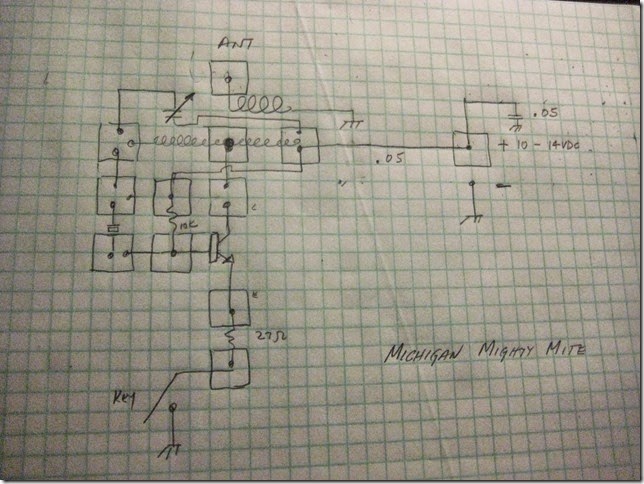 ANT
.05
+ 10 - 14VDC
.05
-
C
10K
E
27Ω
MICHIGAN MIGHTY MITE
Key